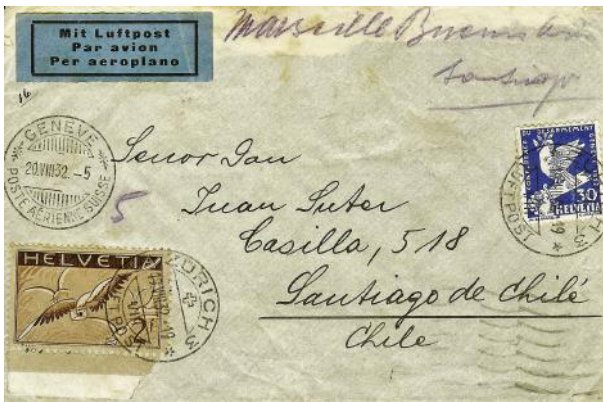 Mit Luftpost
Par avion
Per aeroplano
Marseille Buenos
Santiago
16
GENEVE
20.VIII32.-5
POSTE AÉRIENNE SUISSE
5
Senor Don
Juan Suter
Casilla, 518
Santiago de Chilé
Chile
DU DESARMEMENT
30
HELVETIA
LUFTPOST
HELVETIA
ZÜRICH 3
2